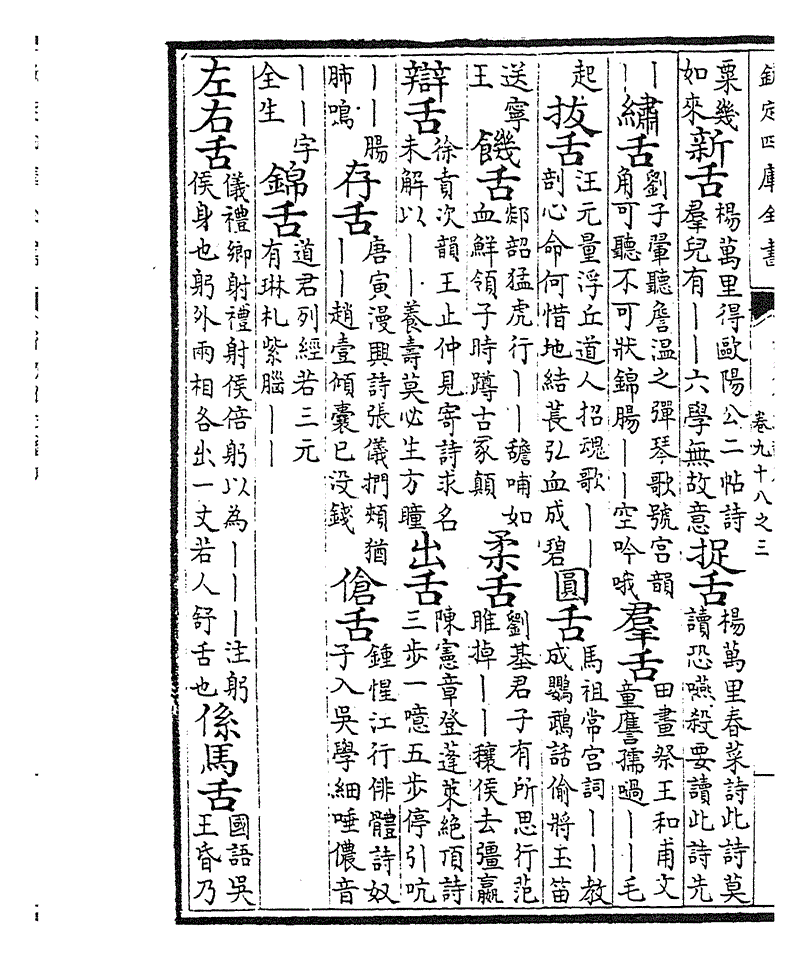 欽定四庫全書
卷九十八之三
粟幾
如來
新舌
楊萬里得歐陽公二帖詩
羣兒有丨丨六學無故意
捉舌
楊萬里春菜詩此詩莫
讀恐嚥殺要讀此詩先
丨
丨
繡舌
劉子翬聽詹温之彈琴歌號宫韻
角可聽不可狀錦腸丨丨空吟哦
羣舌
田晝祭王和甫文
童譍孺喝丨丨毛
起
拔舌
汪元量浮丘道人招魂歌丨丨
剖心命何惜地結萇弘血成碧
圓舌
馬祖常宫詞丨丨教
成鸚鵡話偷將玉笛
送寧
王
饑舌
郯韶猛虎行丨丨哺如
血鮮領子時蹲古冢顛
柔舌
劉基君子有所思行范
雎掉丨丨穰侯去彊嬴
辯舌
徐賁次韻王止仲見寄詩求名
未解以丨丨養壽莫必生方瞳
出舌
陳憲章登蓬萊絶頂詩
三步一噫五步停引吭
丨丨腸
肺鳴
存舌
唐寅漫興詩張儀捫頰猶
丨丨趙壹傾囊已没錢
傖舌
鍾惺江行俳體詩奴
子入吳學細唾儂音
丨丨字
全生
錦舌
道君列經若三元
有琳札紫腦丨丨
左右舌
儀禮鄉射禮射侯倍躬以為丨丨丨注躬
侯身也躬外兩相各出一丈若人舒舌也
係馬舌
國語吳
王昏乃